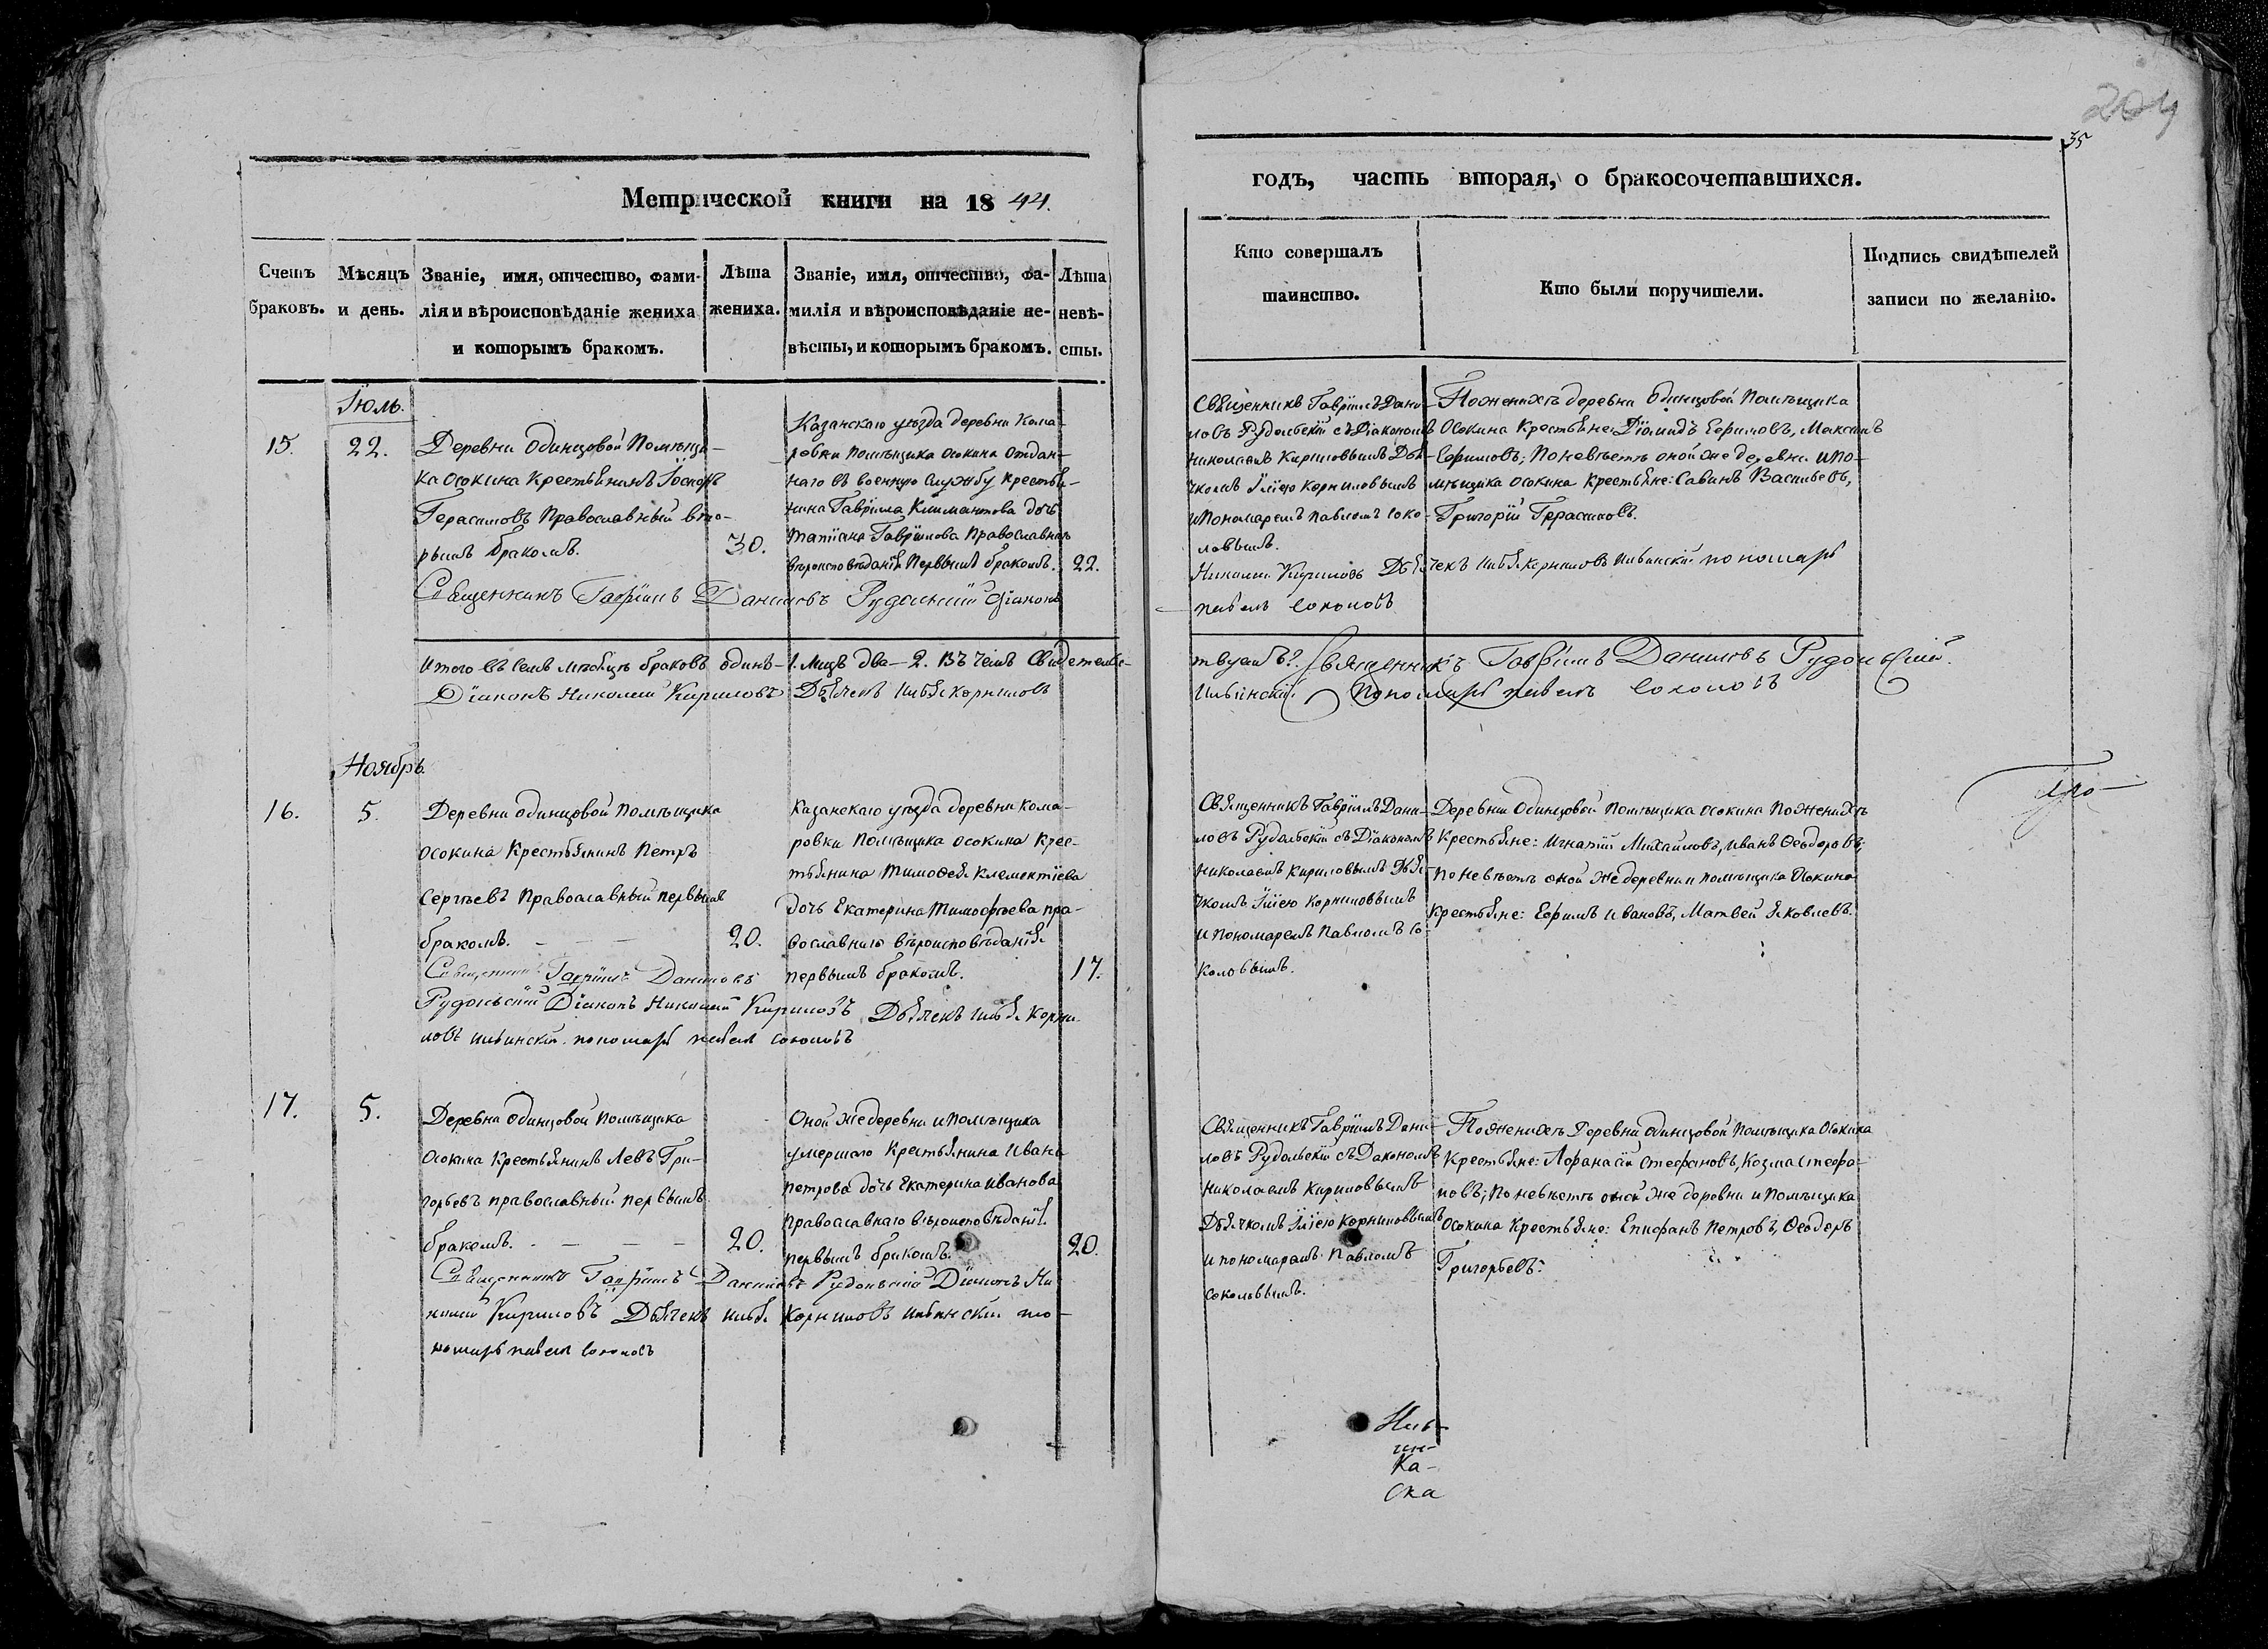 204
35
Метрической книги на 1844.
годъ, часть вторая, о бракосочетавшихся.
Счетъ браковъ.
Мѣсяцъ и день.
Званіе, имя, отчество, фами-
лія и вѣроисповѣданіе жениха
и которымъ бракомъ.
Лѣта
жениха.
Званіе, имя, отчество, фа-
милія и вѣроисповѣданіе не-
вѣсты, и которымъ бракомъ.
Лѣта
невѣ-
сты.
Кто совершалъ
таинство.
Кто были поручители.
Подпись свидѣтелей
записи по желанію.
Іюль.
15.
22.
Деревни Одинцовой Помѣщи-
ка Осокина Крестьянинъ
Герасимовъ Православный вто-
рымъ бракомъ.
30.
Казанскаго уѣзда деревни Кома-
ровки помѣщика Осокина отдан-
наго въ военную службу крестья-
нина Гавріила дочь
Татіана Гавріилова Православнаго
вѣроисповѣданія Первымъ бракомъ.
22.
Священникъ Гавріилъ Даниловъ Рудольскій Діаконъ
Священникъ Гавріилъ Дани-
ловъ Рудольскій съ Діакономъ
Николаемъ Кириловымъ Дья-
чкомъ Иліею Корниловымъ
и Пономаремъ Павломъ Соко-
ловымъ.
По женихѣ деревни Одинцовой Помѣщика
Осокина Крестьяне: Діомидъ Ефимовъ, Максимъ
Ефимовъ; По невѣстѣ оной же деревни и По-
мѣщика Осокина Крестьяне: Савинъ Васильевъ,
Григорій Герасимовъ.
Николай Кириловъ Дьячекъ Илья Корниловъ Ильинскій пономарь
павелъ соколовъ
Итого въ семъ мѣсяцѣ браковъ одинъ-1. Лицъ два-2. Въ чемъ Свидетельс-
твуемъ: Священникъ Гавріилъ Даниловъ Рудольскій.
Діаконъ Николай Кириловъ Дьячекъ Илья Корниловъ
Ильинскій Пономарь павелъ соколовъ
Ноябрь.
16.
5.
Деревни Одинцовой Помѣщика
Осокина Крестьянинъ Петръ
Сергѣевъ Православный первымъ
бракомъ.
20.
Казанскаго уѣзда деревни Кома-
ровки Помѣщика Осокина Крес-
тьянина Тимоѳея Клементіева
дочь Екатерина Тимофѣева пра-
вославнаго вѣроисповѣданія
первымъ бракомъ.
17.
Священникъ Гавріилъ Даниловъ
Рудольскій Діаконъ Николай Кириловъ Дьячекъ Илья Корни-
ловъ Ильинскій пономарь павелъ соколовъ
Священникъ Гавріилъ Дани-
ловъ Рудольскій съ Діакономъ
Николаемъ Кириловымъ Дья-
чкомъ Иліею Корниловымъ
и Пономаремъ Павломъ Со-
коловымъ.
Деревни Одинцовой помѣщика Осокина По женихѣ
Крестьяне: Игнатій Михайловъ, Иванъ Ѳеодоровъ;
По невѣстѣ оной же деревни и помѣщика Осокина
Крестьяне: Ефимъ Ивановъ, Матвей Яковлевъ.
17.
5.
Деревни Одинцовой Помѣщика
Осокина Крестьянинъ Левъ Гри-
горьевъ православный первымъ
бракомъ.
20.
Оной же деревни и Помѣщика
умершаго Крестьянина Ивана
Петрова дочь Екатерина Иванова
Православнаго вѣроисповѣданія
первымъ бракомъ.
20.
Священникъ Гавріилъ Даниловъ Рудольскій Діаконъ Ни-
колай Кириловъ Дьячекъ Илья Корниловъ Ильинскій по-
номарь павелъ соколовъ
Священникъ Гавріилъ Дани-
ловъ Рудольскій съ Дакономъ
Николаемъ Кириловымъ
Дьячкомъ Иліею Корниловымъ
и пономаремъ Павломъ
Соколовымъ.
По женихѣ Деревни Одинцовой Помѣщика Осокина
Крестьяне: Афанасій Стефановъ, Козма Стефа-
новъ; По невѣстѣ оной же деревни и Помѣщика
Осокина Крестьяне: Епифанъ Петровъ, Ѳеодоръ
Григорьевъ.
Ка-